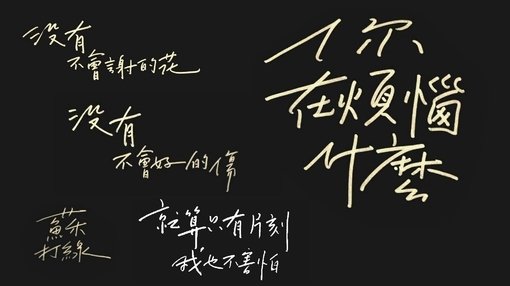 沒有
不會謝的花
沒有
不會好的傷
你
在煩惱
什麼
蘇打綠
就算只有片刻
我也不害怕